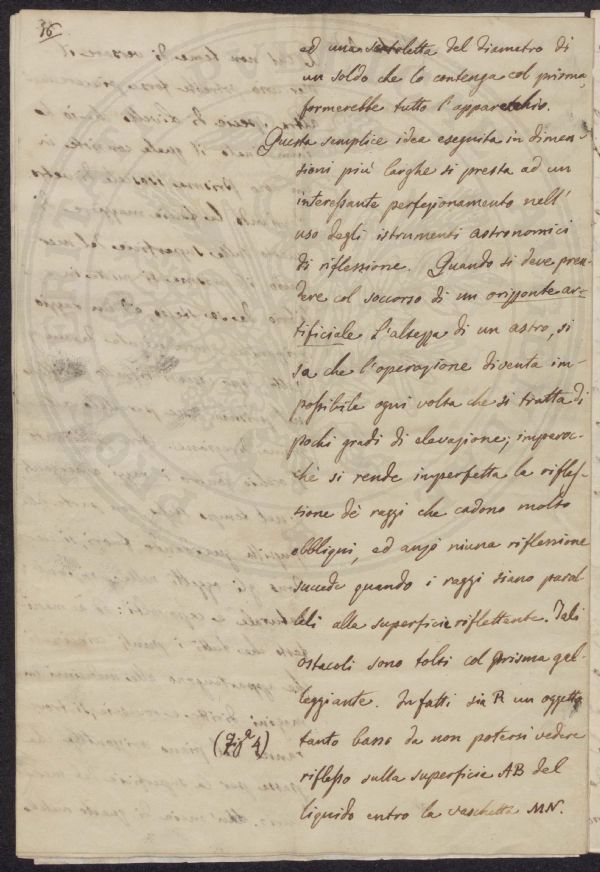 36
ed una scatoletta del diametro di
un soldo che lo contenga col prisma,
formerebbe tutto l'apparecchio.
Questa semplice idea eseguita in dimen-
sioni più larghe si presta ad un
interessante perfezionamento nell'
uso degli istrumenti astronomici
di riflessione. Quando si deve pren-
dere col soccorso di un orizzonte ar-
tificiale l'altezza di un astro, si
sa che l'operazione diventa im-
possibile ogni volta che si tratta di
pochi gradi di elevazione; imperoc-
chè si rende imperfetta la rifles-
sione de' raggi che cadono molto
obbliqui, ed anzi niuna riflessione
succede quando i raggi siano paral-
leli alla superficie riflettente. Tali
ostacoli sono tolti col prisma gal-
leggiante. Infatti sia R un oggetto
(Fig.ª 4) tanto basso da non potersi vedere
riflesso sulla superficie AB del
liquido entro la vaschetta MN.